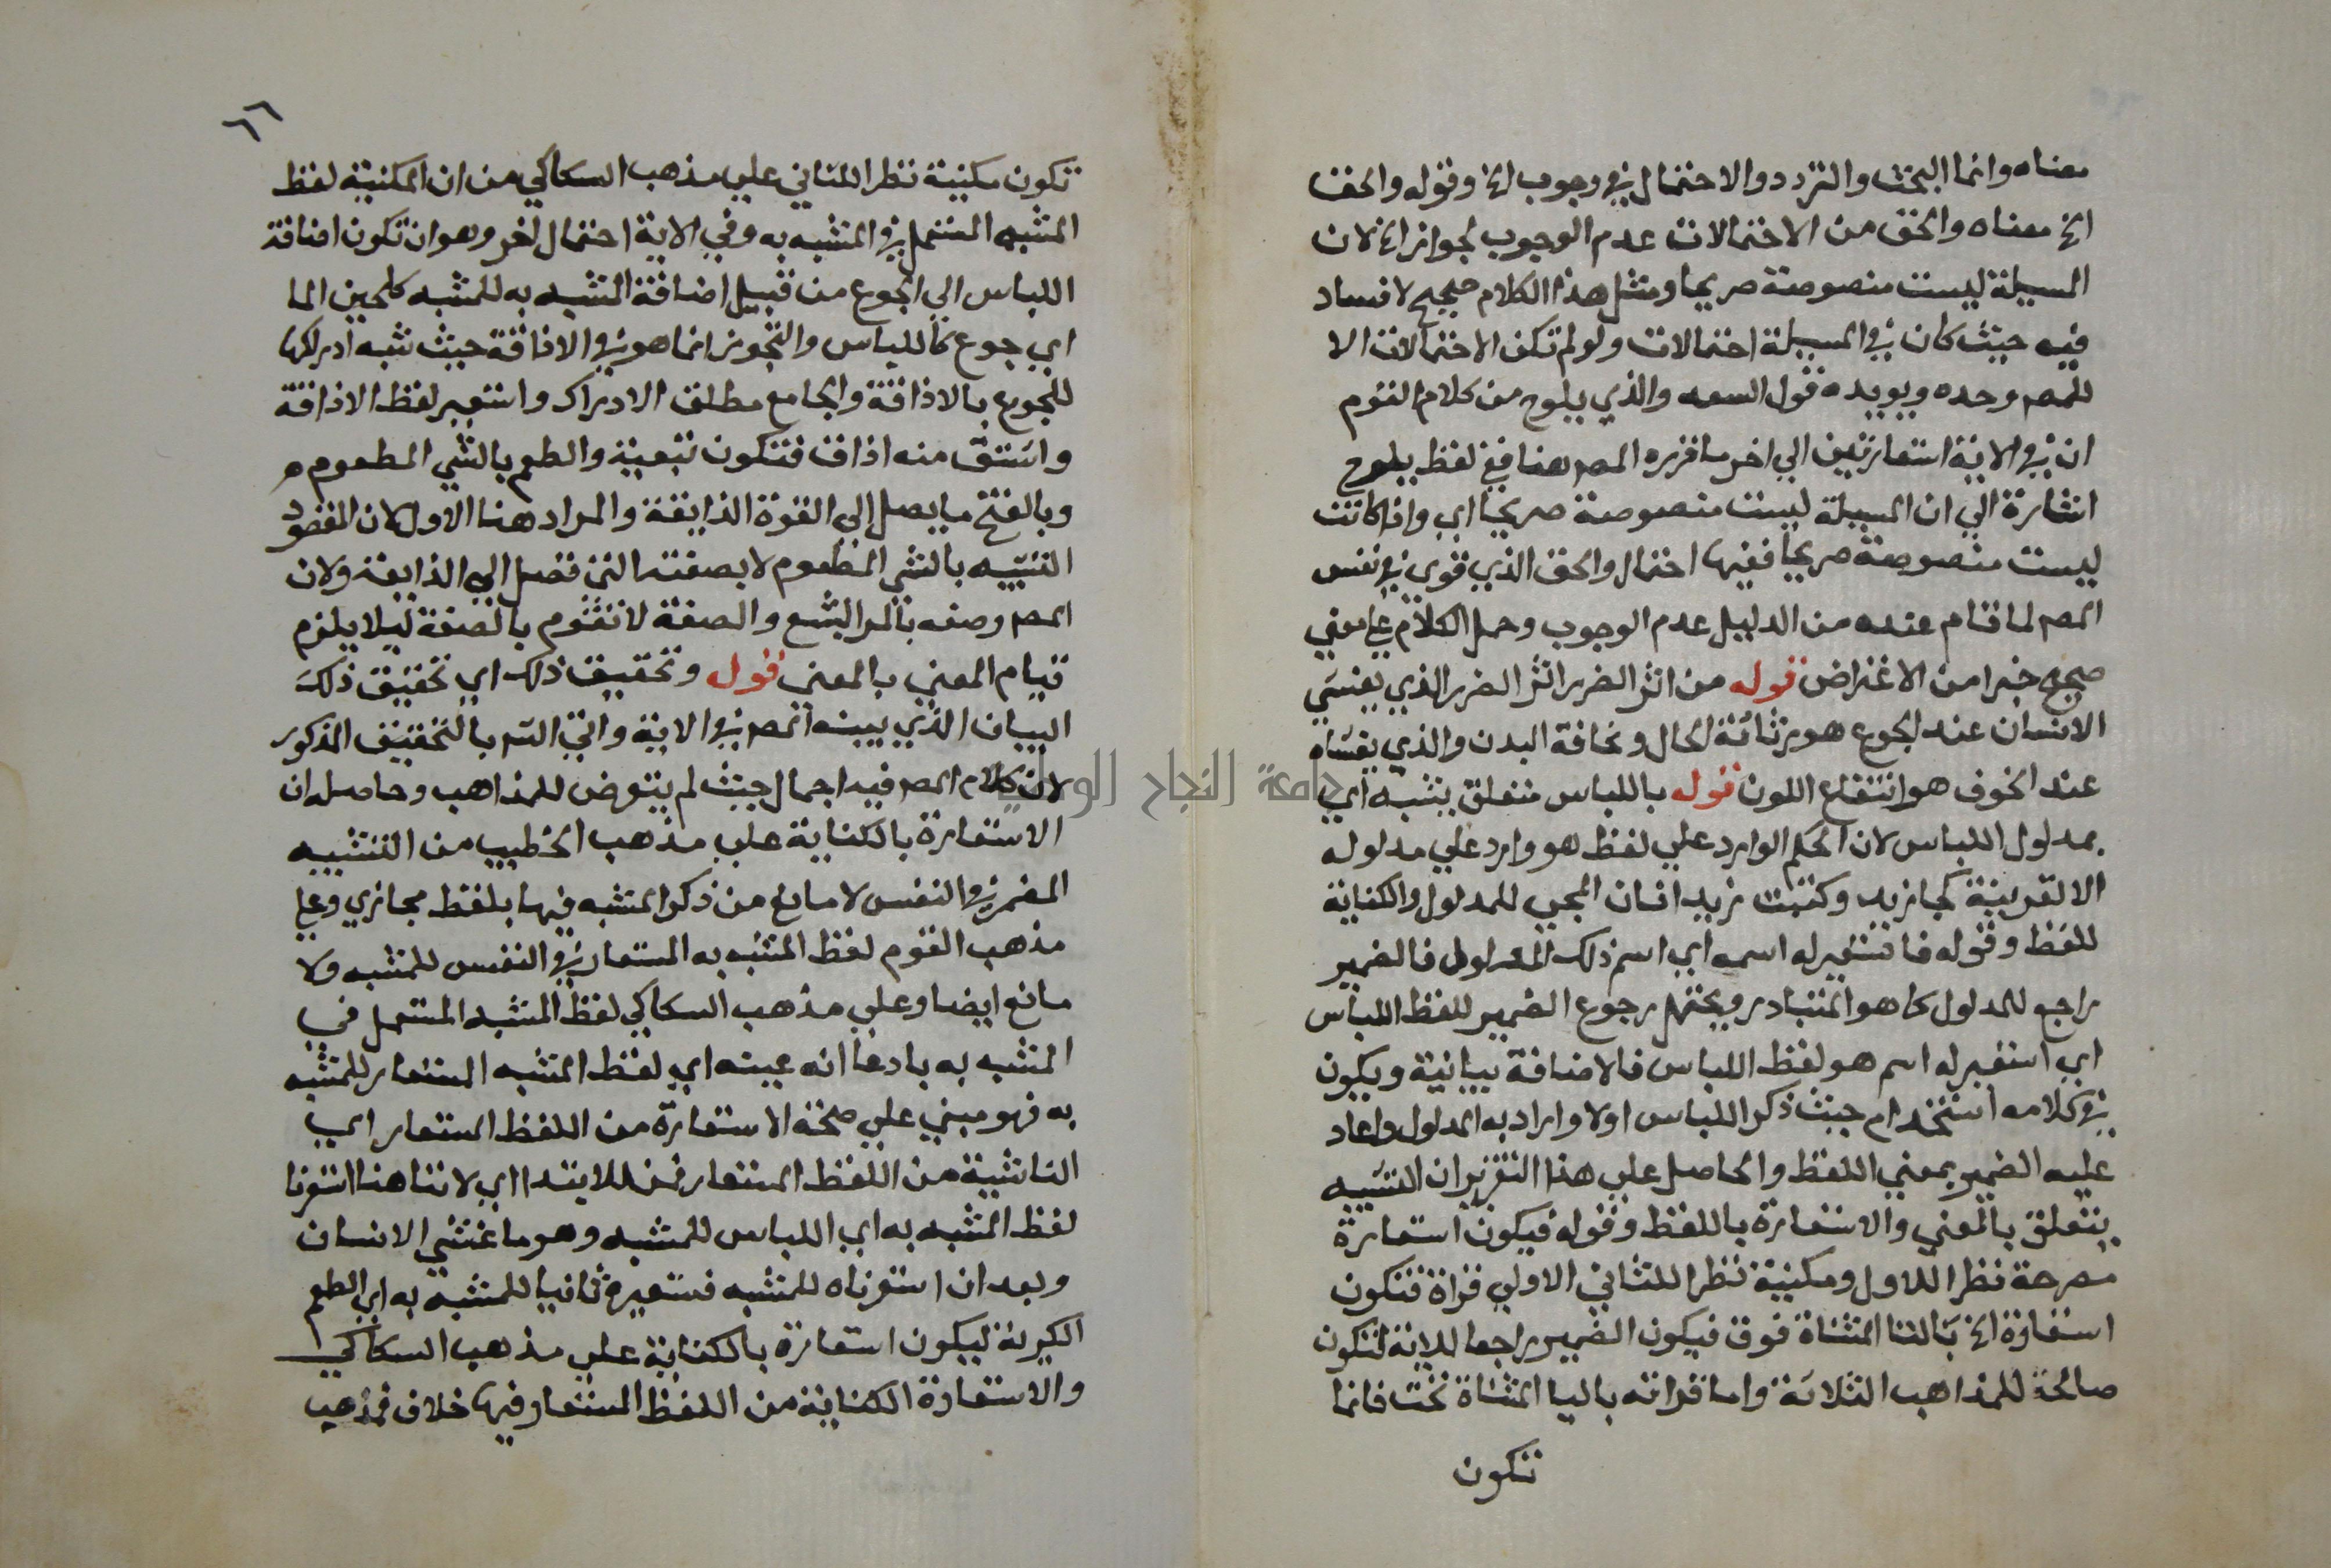 معناه وانما البحث والتردد والاحتمال في وجوب الخ وقوله والحق
الخ معناه والحق من الاحتمالات عدم الوجوب لجواز الخ لان
المسيلة ليست منصوصة صريحا ومثل هذا الكلام صحيح لا فساد
فيه حيث كان في المسيلة احتمالات ولو لم تكن الاحتمالات الا
للمص وحده ويويده قول السعد والذي يلوح من كلام القوم
ان في الاية استعارتين الي اخر ما قرره المص هنا ففي لفظ يلوح
اشارة الي ان المسيلة ليست منصوصة صريحا اي واذا كانت
ليست منصوصة صريحا ففيها احتمال والحق الذي قوي في نفس
المص لما قام عنده من الدليل عدم الوجوب وحمل الكلام علي معني
صحيح خير من الاعتراض قوله من اثر الضرر اثر الضرر الذي يغشي
الانسان عند الجوع هو رثاثة الحال ونحافة البدن والذي يغشاه
عند الخوف هو انتقاع اللون قوله باللباس متعلق بشبه اي
بمدلول اللباس لان الحكم الوارد علي لفظ هو وارد علي مدلوله
الا لقرينة كجا زيد وكتبت زيد فان المجي للمدلول والكتابة
للفظ وقوله فاستعير له اسمه اي اسم ذلك المدلول فالضمير
راجع للمدلول كما هو المتبادر ويحتمل رجوع الضمير للفظ اللباس
اي استعير له اسم هو لفظ اللباس فالاضافة بيانية ويكون
في كلامه استخدام حيث ذكر اللباس اولا واراد به المدلول واعاد
عليه الضمير بمعني اللفظ والحاصل علي هذا التقرير ان التشبيه
يتعلق بالمعني والاستعارة باللفظ وقوله فيكون استعارة
مصرحة نظرا للاول ومكنية نظرا للثاني الاولي قراة فتكون
استعارة الخ بالتا المثناة فوق فيكون الضمير راجعا للاية لتكون
صالحة للمذاهب الثلاثة واما قراته باليا المثناة تحت فانما
تكون
٦٦
تكون مكنية نظرا للثاني علي مذهب السكاكي من ان المكنية لفظ
المشبه المستعمل في المشبه به وفي الاية احتمال اخر وهو ان تكون اضافة
اللباس الي الجوع من قبيل اضافة المشبه به للمشبه كلجين الما
اي جوع كاللباس والتجوز انما هو في الاذاقة حيث شبه ادراكها
للجوع بالاذاقة والجامع مطلق الادراك واستعير لفظ الاذاقة
واشتق منه اذاق فتكون تبعية والطعم بالشي المطعوم م
وبالفتح ما يصل الي القوة الذايقة والمراد هنا الاول لان المقصود
التشبيه بالشي المطعوم لا بصفته التي تصل الي الذايقة ولان
المص وصفه بالمر البشع والصفة لا تقوم بالصفة ليلا يلزم
قيام المعني بالمعني قوله وتحقيق ذلك اي تحقيق ذلك
البيان الذي بينه المص في الاية واتي الش بالتحقيق المذكور
لان كلام المص فيه اجمال حيث لم يتعرض للمذاهب وحاصله ان
الاستعارة بالكناية علي مذهب الخطيب من التشبيه
المضمر في النفس لا مانع من ذكر المشبه فيها بلفظ مجازي وعلي
مذهب القوم لفظ المشبه به المستعار في النفس للمشبه ولا
مانع ايضا وعلي مذهب السكاكي لفظ المشبه المستعمل في
المشبه به بادعا انه عينه اي لفظ المشبه المستعار للمشبه
به فهو مبني علي صحة الاستعارة من اللفظ المستعار اي
الناشية من اللفظ المستعار فمن للابتدا اي لاننا هنا استعرنا
لفظ المشبه به اي اللباس للمشبه وهو ما غشي الانسان
وبعد ان استعرناه للمشبه نستعيره ثانيا للمشبه به اي الطعم
الكريه ليكون استعارة بالكناية علي مذهب السكاكي
والاستعارة الكناية من اللفظ المستعار فيها خلاف فمذهب
جامعة النجاح الوطنية